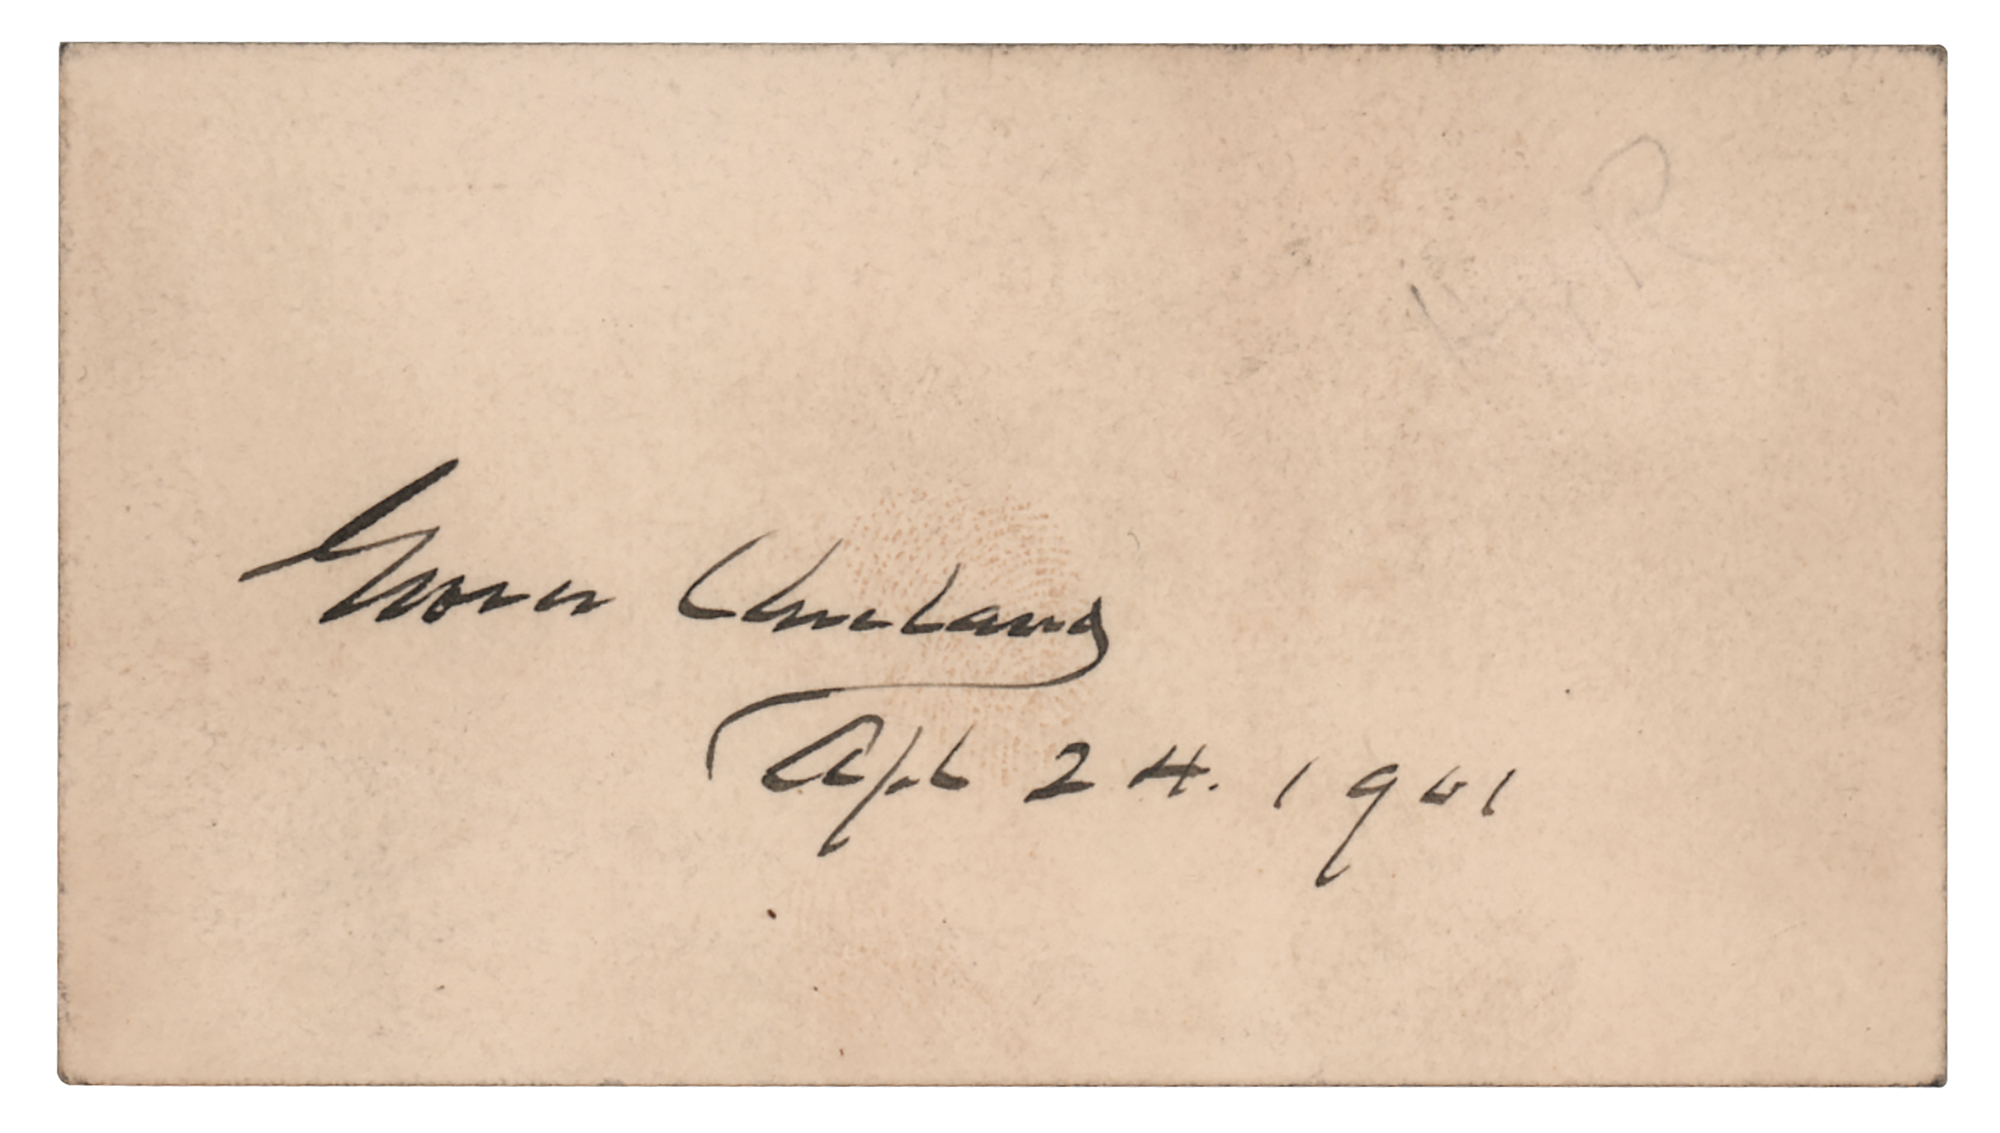 Grover Cleveland
Apl 24. 1901